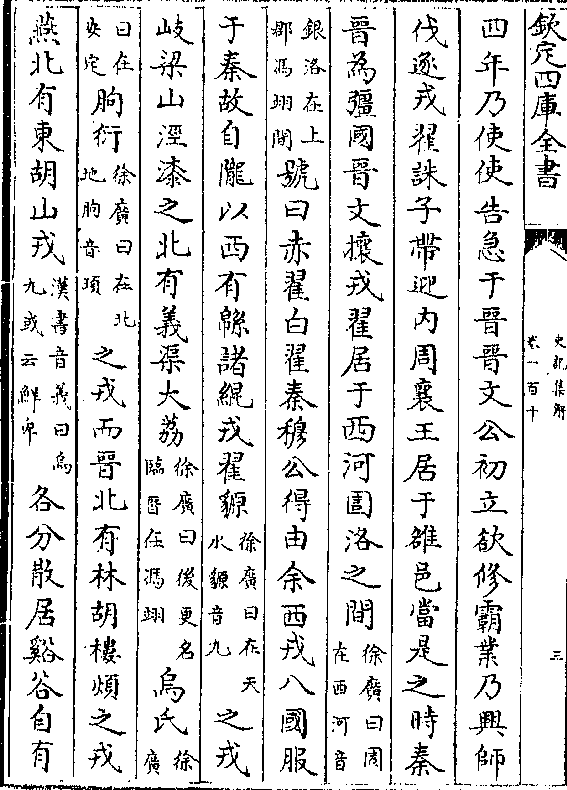 欽定四庫全書
史記集解
卷一百十
三
四年乃使使告急于晉晉文公初立欲修霸業乃興師
伐逐戎翟誅子帶迎内周襄王居于雒邑當是之時秦
晉為彊國晉文攘戎翟居于西河圁洛之間徐廣曰圁在西河音
銀洛在上郡馮翊間號曰赤翟白翟秦穆公得由余西戎八國服
于秦故自隴以西有緜諸緄戎翟豲徐廣曰在天水豲音九之戎
岐梁山涇漆之北有義渠大荔徐廣曰後更名臨晉在馮翊烏氏徐廣
曰在安定朐衍徐廣曰在北地朐音項之戎而晉北有林胡樓煩之戎
燕北有東胡山戎漢書音義曰烏九或云鮮卑各分散居谿谷自有